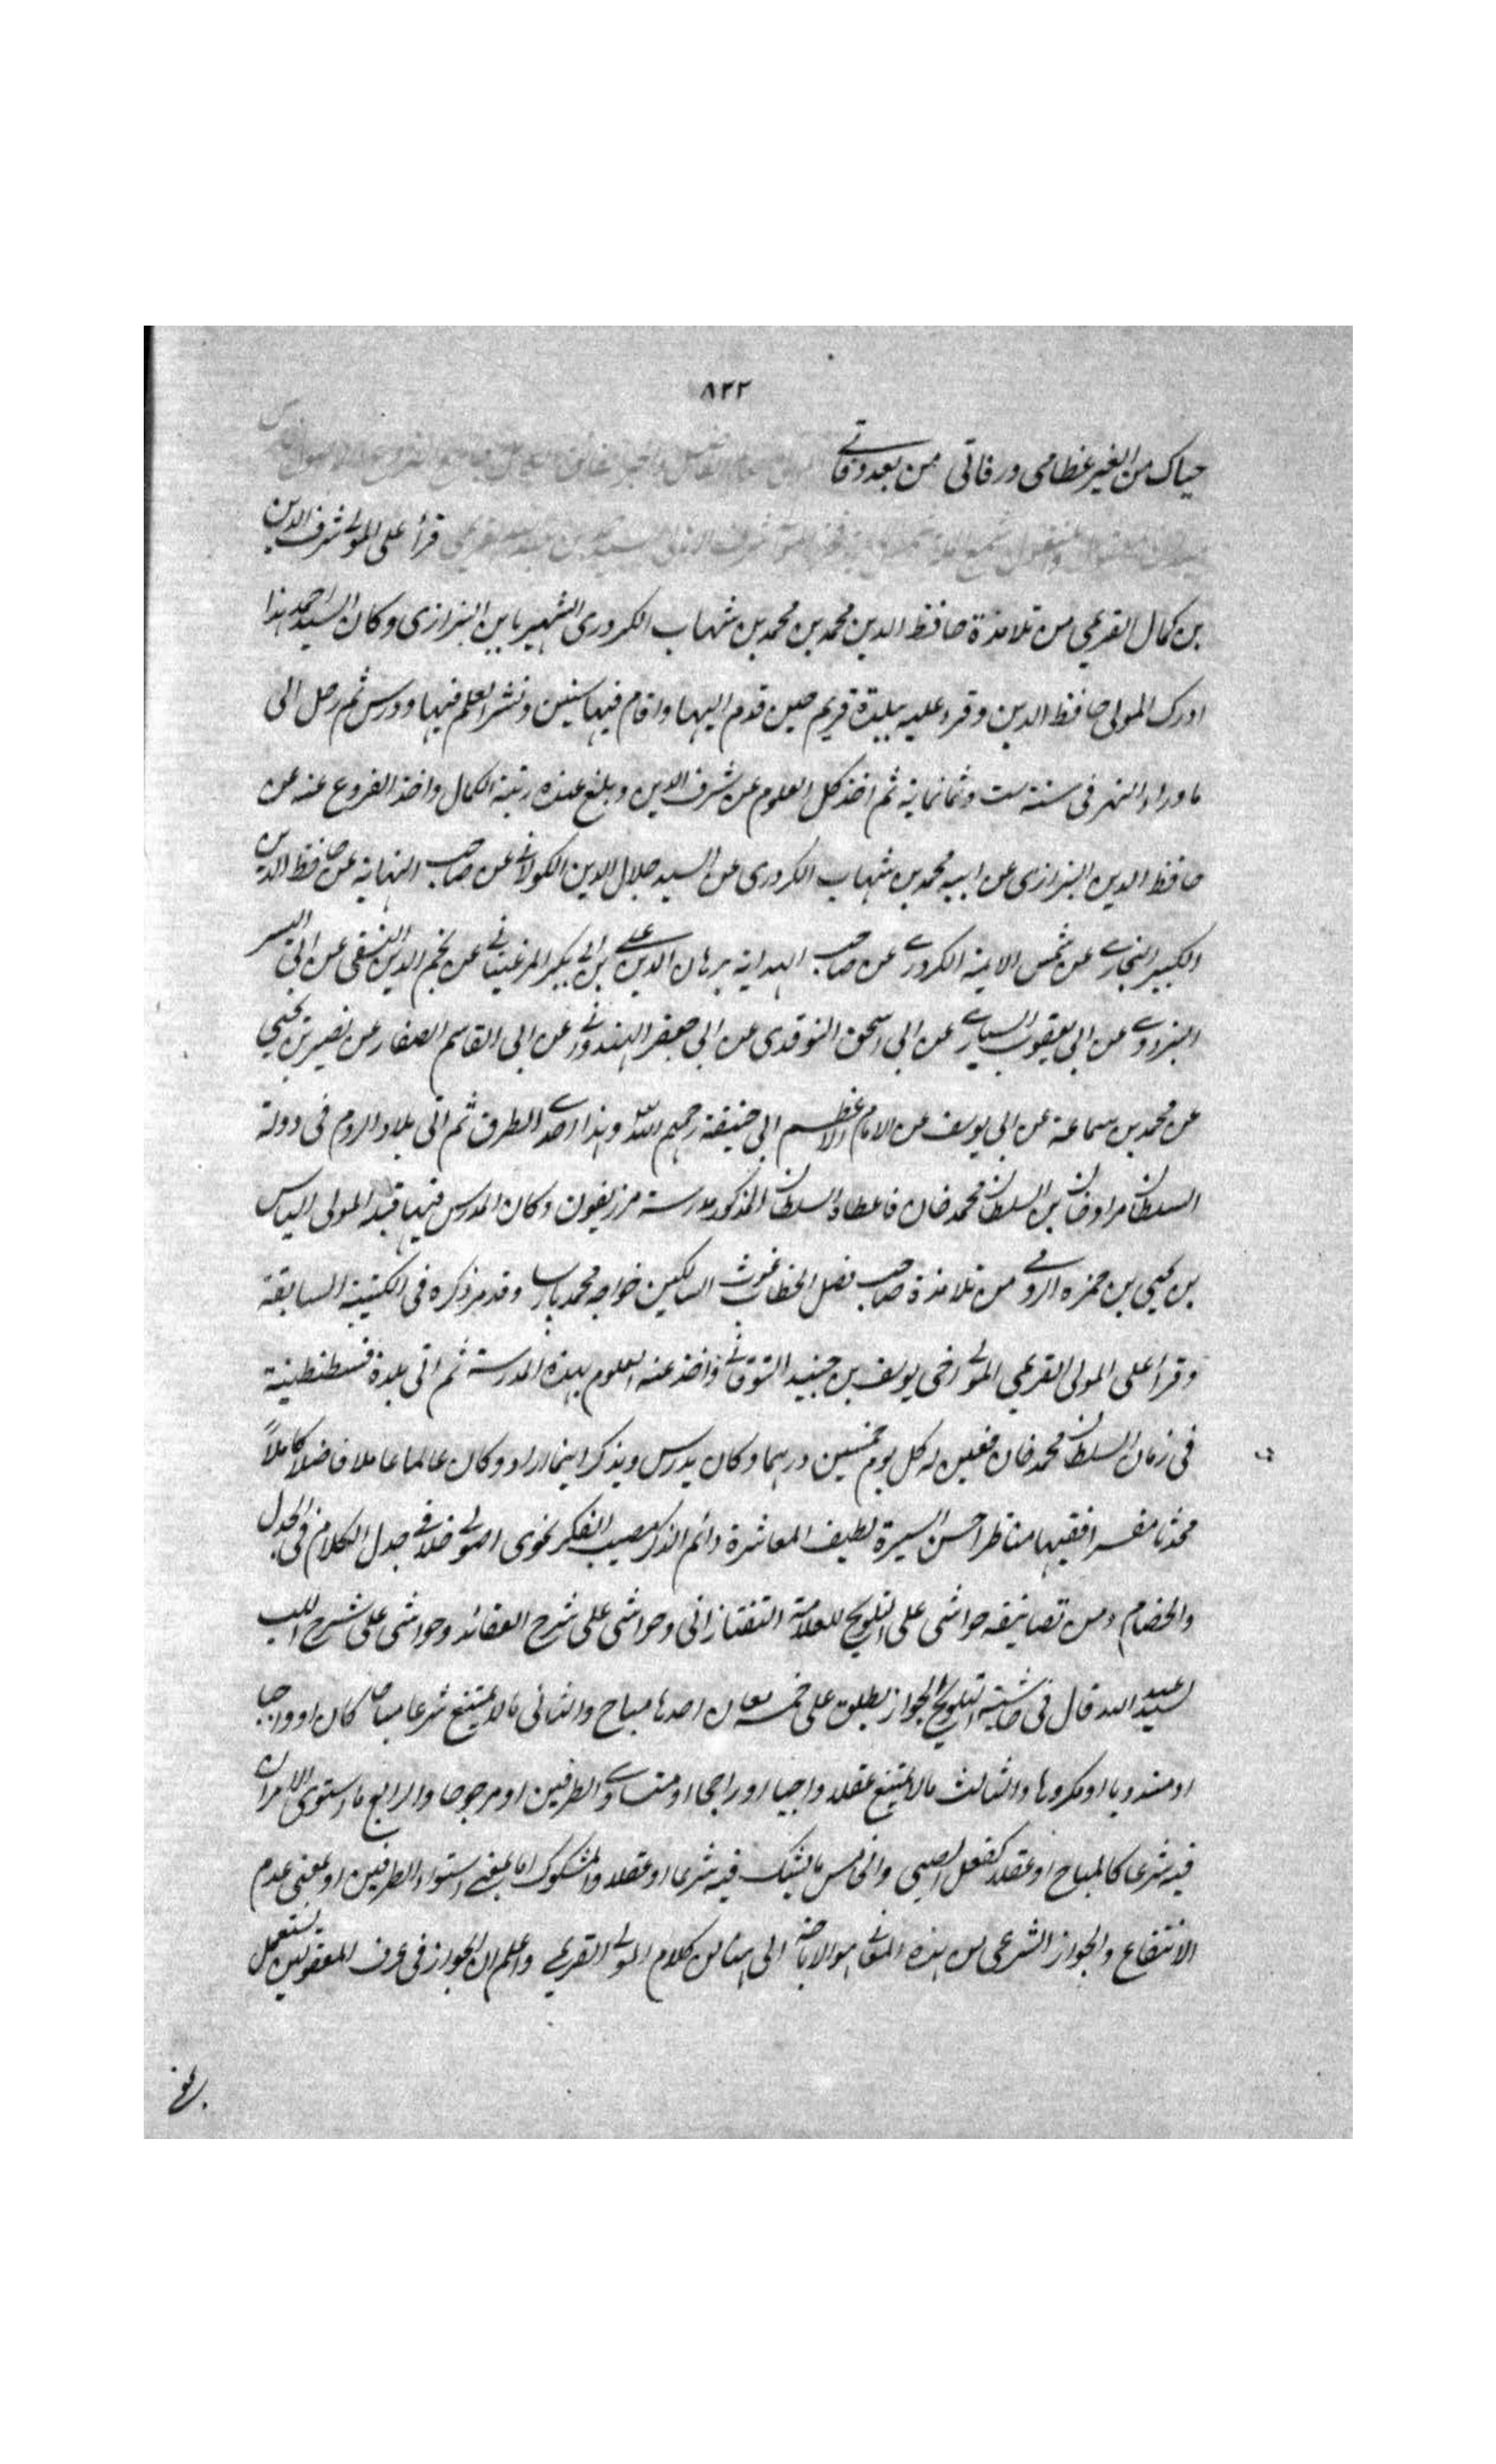 ٨٢٢
حياك من الغير عظامى ورفاتى ممن بعد وفاتے
قرأ على المولى شرف الدين
بن كمال القريمي من تلامذة حافظ الدين محمد بن محمد بن شهاب الكردرى الشهير بابن البزازى وكان السيد احمد هذا
ادرك المولى حافظ الدين وقرء عليه ببلدة قريم حين قدم اليها واقام فيها سنين ونشر العلم فيها ودرس ثم رحل الى
ماوراء النهر فى سنة ست وثمانمائة ثم اخذ كل العلوم عن شرف الدين وبلغ عنده رتبة الكمال واخذ الفروع عنه عن
حافظ الدين البزازى عن ابيه محمد بن شهاب الكردرى عن السيد جلال الدين الكولانے عن صاحب النهاية عن حافظ الدين
الكبير البخارے عن شمس الائمة الكردرے عن صاحب الهداية برهان الدين علے بن ابى بكر المرغينانے عن نجم الدين النسفى عن ابى اليسر
البزدوے عن ابى يعقوب السيارے عن ابى اسحق النوقدى عن ابى جعفر الهندوانے عن ابى القاسم الصفار عن نصير بن يحيي
عن محمد بن سماعة عن ابى يوسف عن الامام الاعظم ابى حنيفة رحمهم الله وهذا احدے الطرق ثم اتى بلاد الروم فى دولة
السلطان مراد خان بن السلطان محمد خان فاعطاه السلطان المذكور مدرسة مرزيفون وكان المدرس فيها قبله المولى الياس
بن يحيى بن حمزه الرومے من تلامذة صاحب فصل الخطاب غوث السالكين خواجه محمد پارسا وقد مر ذكره فى الكتيبة السابقة
وقرأ على المولى القريمي المولى اخى يوسف بن جنيد التوقاتے واخذ عنه العلوم بهذه المدرسة ثم اتى بلدة قسطنطينة
فى زمان السلطان محمد خان فعين له كل يوم خمسين درهما وكان يدرس ويذكر اينما اراد وكان عالما عاملا فاضلا كاملاً
محدثا مفسرا فقيها مناظرا حسن السيرة لطيف المعاشرة دائم الذكر مصيب الفكر نحوى اصولے خلافے جدل الكلام فى الجدل
والخصام ومن تصانيفه حواشى على التلويح للعلامة التفتازانى وحواشى على شرح العقائد وحواشى على شرح اللب
لسيد عبد الله قال فى حاشية التلويح الجواز يطلق على خمسة معان احدها مباح والثانى مالا يمتنع شرعا مباحا كان او واجبا
او مندوبا او مكروها والثالث مالا يمتنع عقلا واجبا او راجحا او متساوے الطرفين او مرجوحا والرابع ما استوى الامران
فيه شرعا كالمباح او عقلا كفعل الصبى والخامس ما يشك فيه شرعا او عقلا والمشكوك اما بمعنے استواء الطرفين او بمعنى عدم
الامتناع والجواز الشرعى من هذه المعانے هو الاباحة الى هنا من كلام المولے القريمے واعلم ان الجواز فى عرف المعقوليين يستعمل